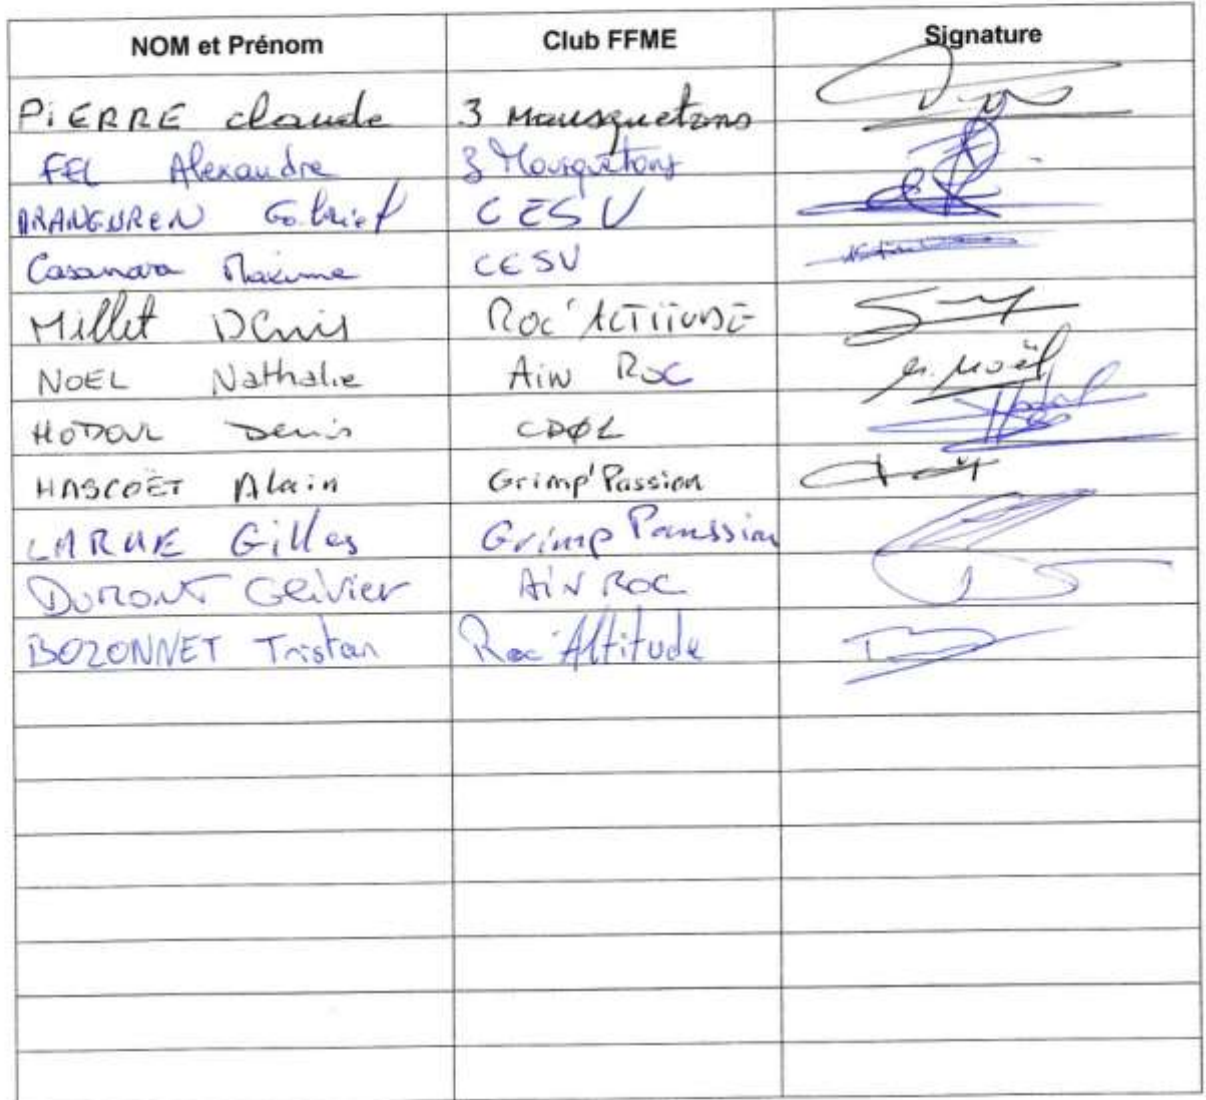 NOM et Prénom Club FFME Signature
PiERRE claude 3 Mousquetons
FEL Alexandre 3 Mousquetons
ARANGUREN Gabriel CESV
Casanova Maxime CESV
Millet Denis ROC'ALTITUDE
NOEL Nathalie Ain Roc n. Noël
HODOUL Denis CDØL
HASCOËT Alain Grimp'Passion
LARUE Gilles Grimp Passion
DUMONT Olivier AiN ROC
BOZONNET Tristan Roc'Altitude